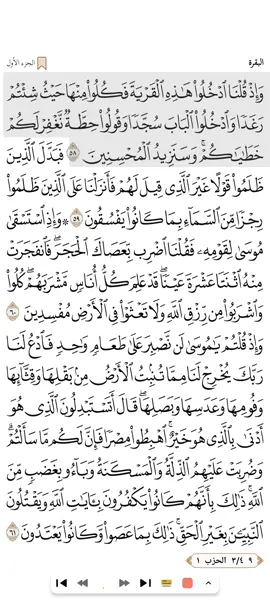 البقرة الجزء الأول
وَإِذْ قُلْنَا ٱدْخُلُوا۟ هَٰذِهِ ٱلْقَرْيَةَ فَكُلُوا۟ مِنْهَا حَيْثُ شِئْتُمْ
رَغَدًا وَٱدْخُلُوا۟ ٱلْبَابَ سُجَّدًا وَقُولُوا۟ حِطَّةٌ نَّغْفِرْ لَكُمْ
خَطَٰيَٰكُمْ ۚ وَسَنَزِيدُ ٱلْمُحْسِنِينَ ٥٨ فَبَدَّلَ ٱلَّذِينَ
ظَلَمُوا۟ قَوْلًا غَيْرَ ٱلَّذِى قِيلَ لَهُمْ فَأَنزَلْنَا عَلَى ٱلَّذِينَ ظَلَمُوا۟
رِجْزًا مِّنَ ٱلسَّمَآءِ بِمَا كَانُوا۟ يَفْسُقُونَ ٥٩ ۞ وَإِذِ ٱسْتَسْقَىٰ
مُوسَىٰ لِقَوْمِهِۦ فَقُلْنَا ٱضْرِب بِّعَصَاكَ ٱلْحَجَرَ ۖ فَٱنفَجَرَتْ
مِنْهُ ٱثْنَتَا عَشْرَةَ عَيْنًا ۖ قَدْ عَلِمَ كُلُّ أُنَاسٍ مَّشْرَبَهُمْ ۖ كُلُوا۟
وَٱشْرَبُوا۟ مِن رِّزْقِ ٱللَّهِ وَلَا تَعْثَوْا۟ فِى ٱلْأَرْضِ مُفْسِدِينَ ٦٠
وَإِذْ قُلْتُمْ يَٰمُوسَىٰ لَن نَّصْبِرَ عَلَىٰ طَعَامٍ وَٰحِدٍ فَٱدْعُ لَنَا
رَبَّكَ يُخْرِجْ لَنَا مِمَّا تُنۢبِتُ ٱلْأَرْضُ مِنۢ بَقْلِهَا وَقِثَّآئِهَا
وَفُومِهَا وَعَدَسِهَا وَبَصَلِهَا ۖ قَالَ أَتَسْتَبْدِلُونَ ٱلَّذِى هُوَ
أَدْنَىٰ بِٱلَّذِى هُوَ خَيْرٌ ۚ ٱهْبِطُوا۟ مِصْرًا فَإِنَّ لَكُم مَّا سَأَلْتُمْ ۗ
وَضُرِبَتْ عَلَيْهِمُ ٱلذِّلَّةُ وَٱلْمَسْكَنَةُ وَبَآءُو بِغَضَبٍ مِّنَ
ٱللَّهِ ۗ ذَٰلِكَ بِأَنَّهُمْ كَانُوا۟ يَكْفُرُونَ بِـَٔايَٰتِ ٱللَّهِ وَيَقْتُلُونَ
ٱلنَّبِيِّـۧنَ بِغَيْرِ ٱلْحَقِّ ۗ ذَٰلِكَ بِمَا عَصَوا۟ وَّكَانُوا۟ يَعْتَدُونَ ٦١
٩ ٣/٤ الحزب ١